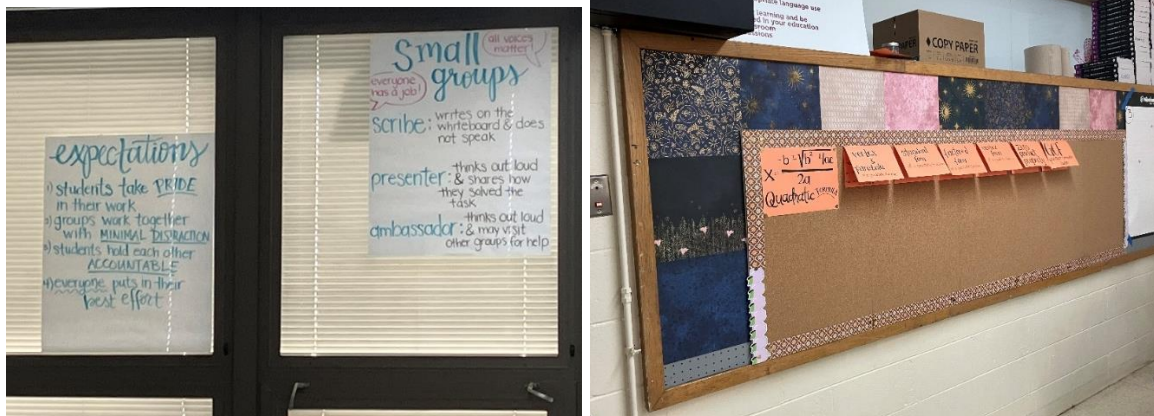 expectations
1) students take PRIDE
in their work
2) groups work together
with MINIMAL DISTRACTION
3) students hold each other
ACCOUNTABLE
4) everyone puts in their
best effort
Small
groups
all voices
matter!
everyone
has a job!
scribe: writes on the
whiteboard & does
not speak
presenter: thinks out loud
& shares how
they solved the
task
ambassador: thinks out loud
& may visit
other groups for help
language use
learning and be
in your education
COPY PAPER
X = -b ± √b² - 4ac
2a
Quadratic FORMULA
vertex &
standard
form
factored
form
zero
product
property